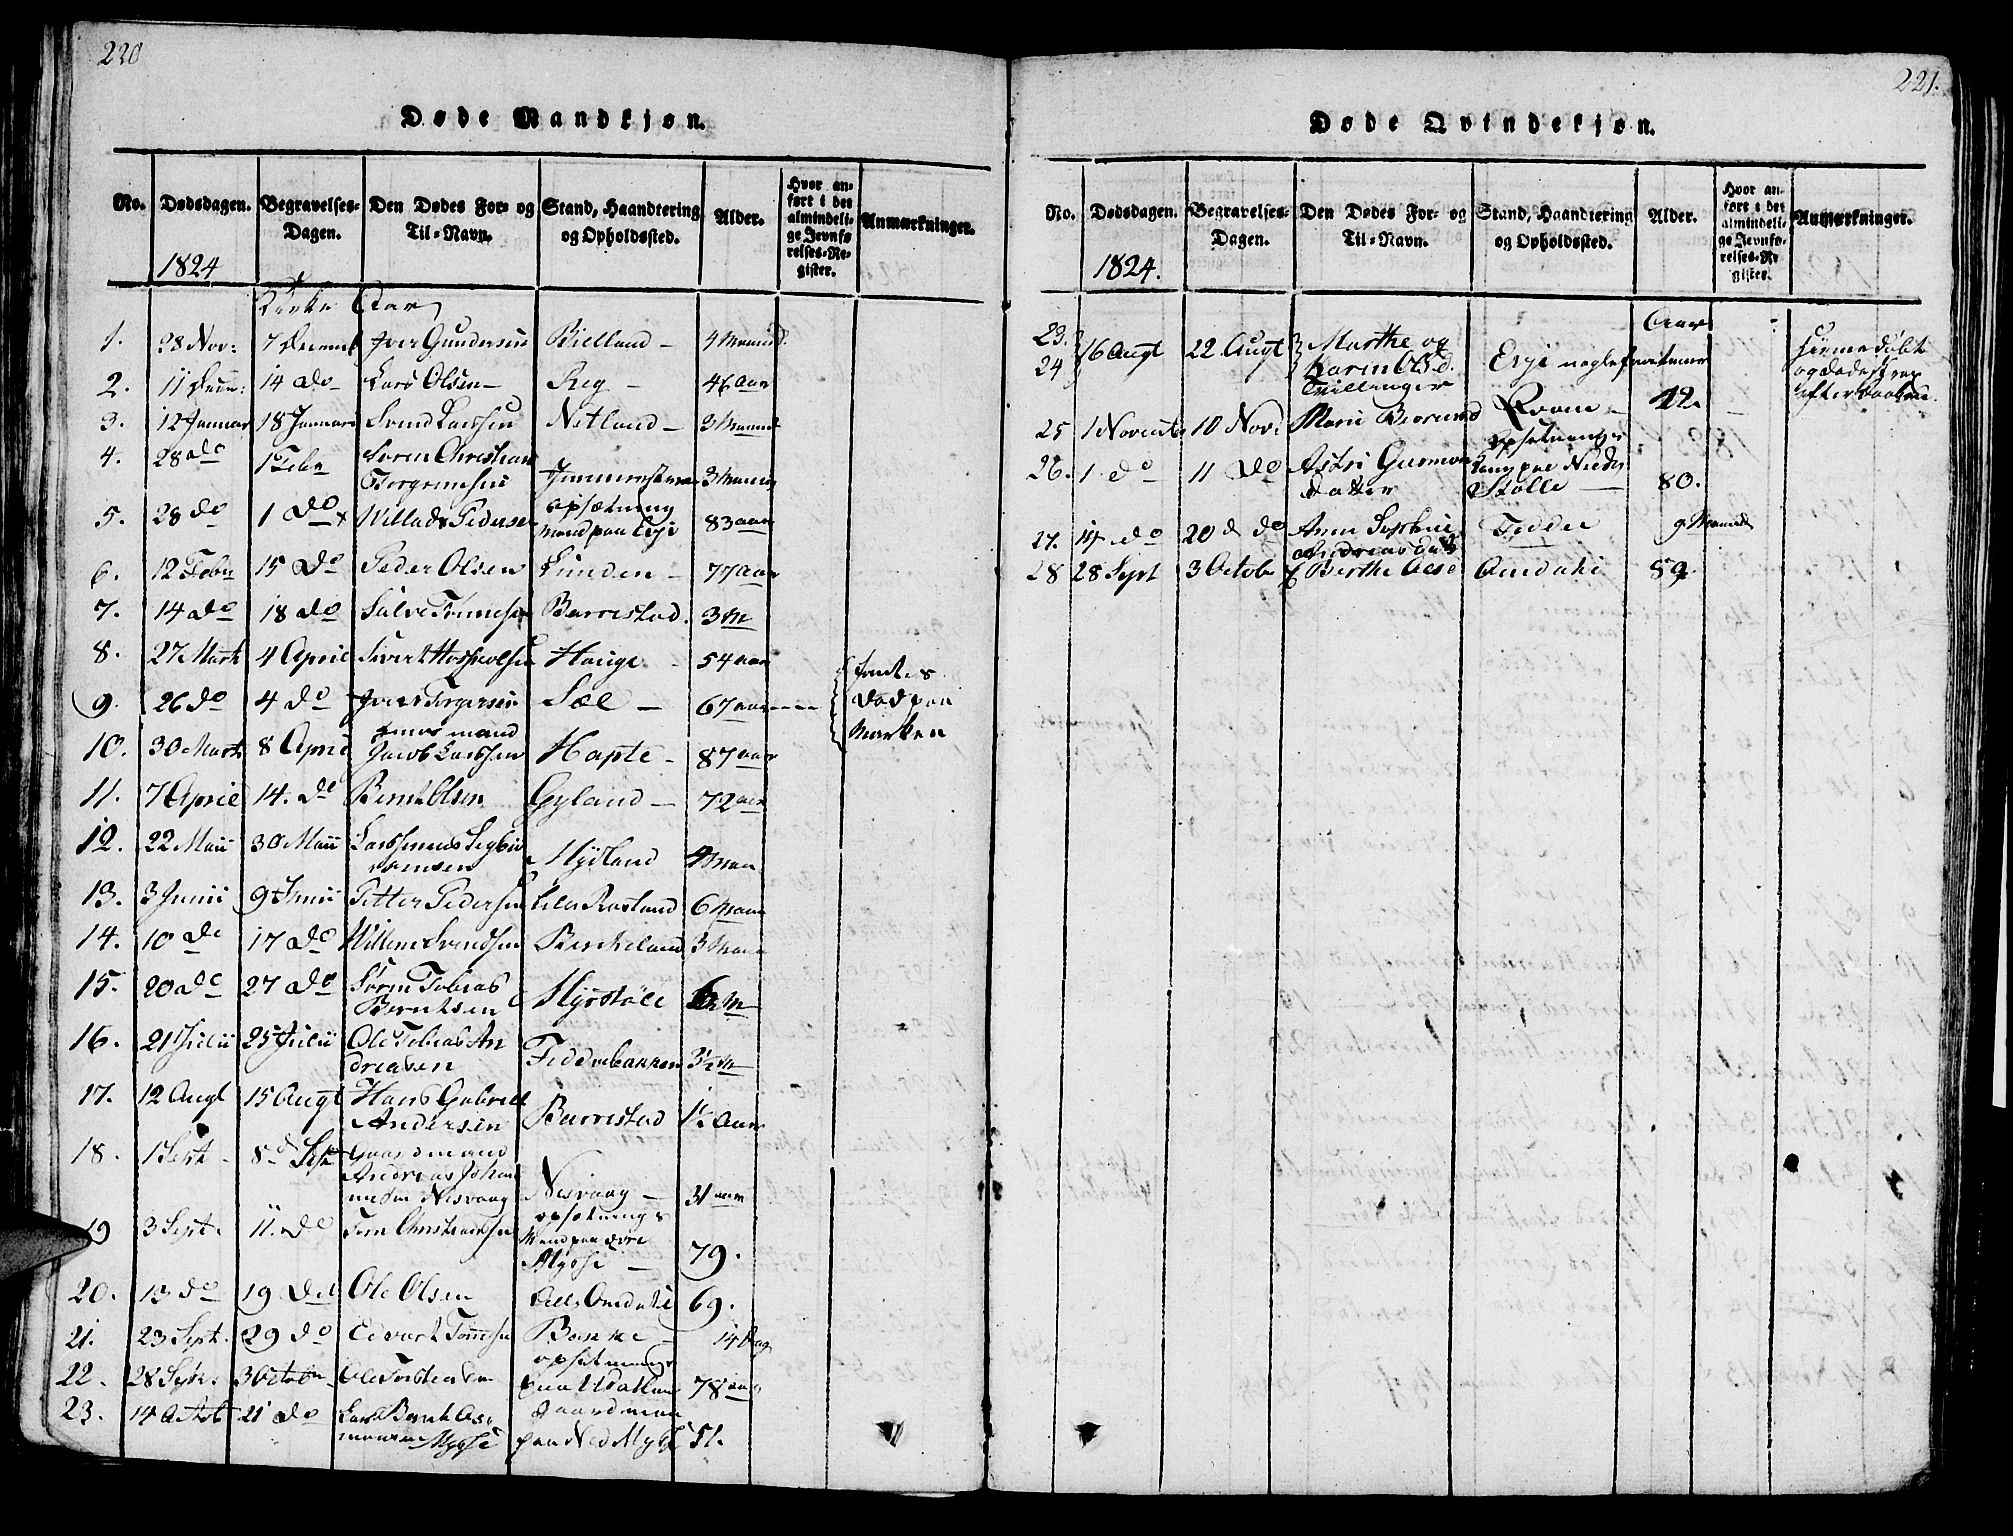 220
Døde Mandkjøn.
No. Dødsdagen. Begravelses-Dagen. Den Dødes For- og Til-Navn. Stand, Haandtering og Opholdssted. Alder. Hvor anført i det almindelige Jevnførelses-Register. Anmærkninger.
1824
Kirke Aar
1. 28 Nov: 7 Iver Gundersen Bielland - 4 Maaned
2. 11 Decbr: 14 do Lars Olsen - Reg - 46 aar
3. 12 Januar 18 Januari Svend Larssen Netland - 3 Maaned
4. 28 do 1 Febr Søren Christian
Torgrimsen 3 Maaned
5. 28 do 1 do Willads Pedersen opsætning
Mand paa Eeje 83 aar
6. 12 Febr 15 do Peder Olsen Lunden - 77 aar
7. 14 do 18 do Salve Tønnesen Barrestad. 3 M
8. 27 Marti 4 April Sivert Hauge - 54 aar
9. 26 do 4 do Iver Torgersen Sæl - 67 aar
fantes
død paa
Marken
10. 30 Marti 8 April
Jacob Larssen Hapte - 87 aar
11. 7 April 14. do Bernt Olsen Gyland - 72 aar
12. 22 Maii 30 Maii Sigbiø
rensen Mydland 4 Maan
13. 3 Junii 9 Junii Petter Pedersen Lille Rosland 6 Maan
14. 10 do 17 do Willem Svendsen Birkeland 3 Maan
15. 20 do 27 do Søren Tobias
Berntsen Myrstøll 6 M
16. 21 Julii 25 Julii Ole Tobias An
dreasen Feddebakken 3½ M
17. 12 Augt 15 Augt Hans Gabriel
Andersen Barrestad 1½ Aar
18. 1 Sept - 8 d Sept Gaardmand
Andreas Johan
Nesvaag Nesvaag - 31 aar
19 3 Sept. 11. do Christiansen opsætnings
Mand paa øvre
Mysse - 79.
20. 13 do 19 do Ole Olsen Lille Omdal 69.
21. 23 Sept. 29 do Edvart Tønnesen Bakke - 14 Dag
22. 28 Sept. 3 Octobr Ole Torstensen opsætnings
paa Udatland 78 aar
23. 14 Octob 21 do Lars Bernt Aas
Mysse gaardman
paa Ned Mysse 51.
221.
Døde Qvindekjøn.
No. Dødsdagen. Begravelses-Dagen. Den Dødes For- og Til-Navn. Stand, Haandtering og Opholdssted. Alder. Hvor anført i det almindelige Jevnførelses-Register. Anmærkninger.
1824.
Aar
23.
24 16 Augt 22. Augt Marthe og
Karin Olsd.
Tvillinger Eeje
Hiemedøbt
og døde strax
efter Daaben.
25 1 November 10 Nov: Marie 42.
26. 1 do 11 do Astri Gunmons
datter opsætnings
paa Nedre
Stølle 80.
27. 14 do 20 d do Anna Sophie
Andreasdatt Fedde 9 Maaned
28 28 Sept 3 Octob Berthe Aasd Omdahl 89